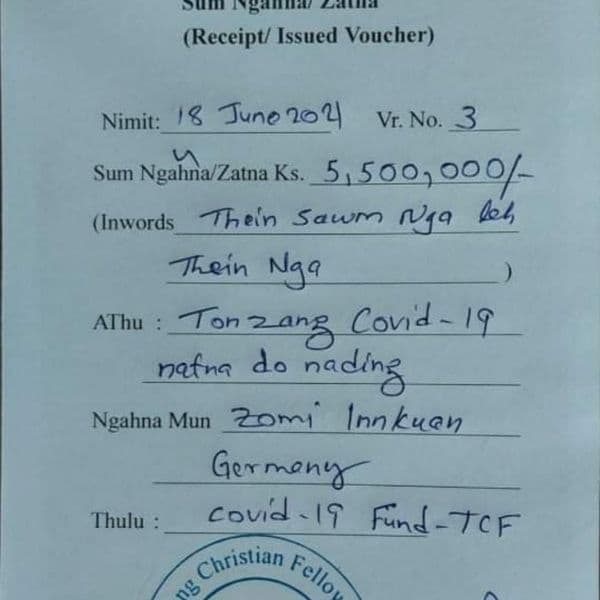 Sum Ngahna/ Zatna
(Receipt/ Issued Voucher)
Nimit: 18 June 2021 Vr. No. 3
Sum Ngahna/Zatna Ks. 5,500,000/-
(Inwords Thein Sawm Nga leh
Thein Nga )
AThu : Tonzang Covid-19
natna do nading
Ngahna Mun Zomi Innkuan
Germany
Thulu : Covid-19 Fund-TCF
ng Christian Fellow